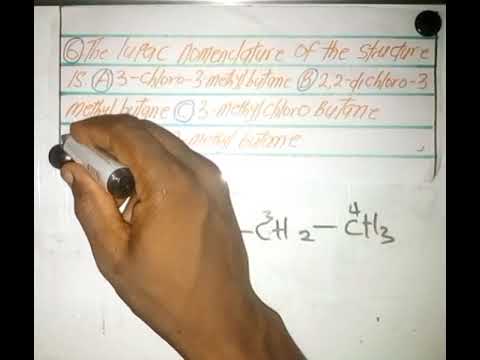 ⑥ The Iupac nomenclature of the structure
is. Ⓐ 3-chloro-3 methyl butane Ⓑ 2,2-dichloro-3
methyl butane Ⓒ 3-methyl chloro Butane
methyl butane
—³CH₂—⁴CH₃